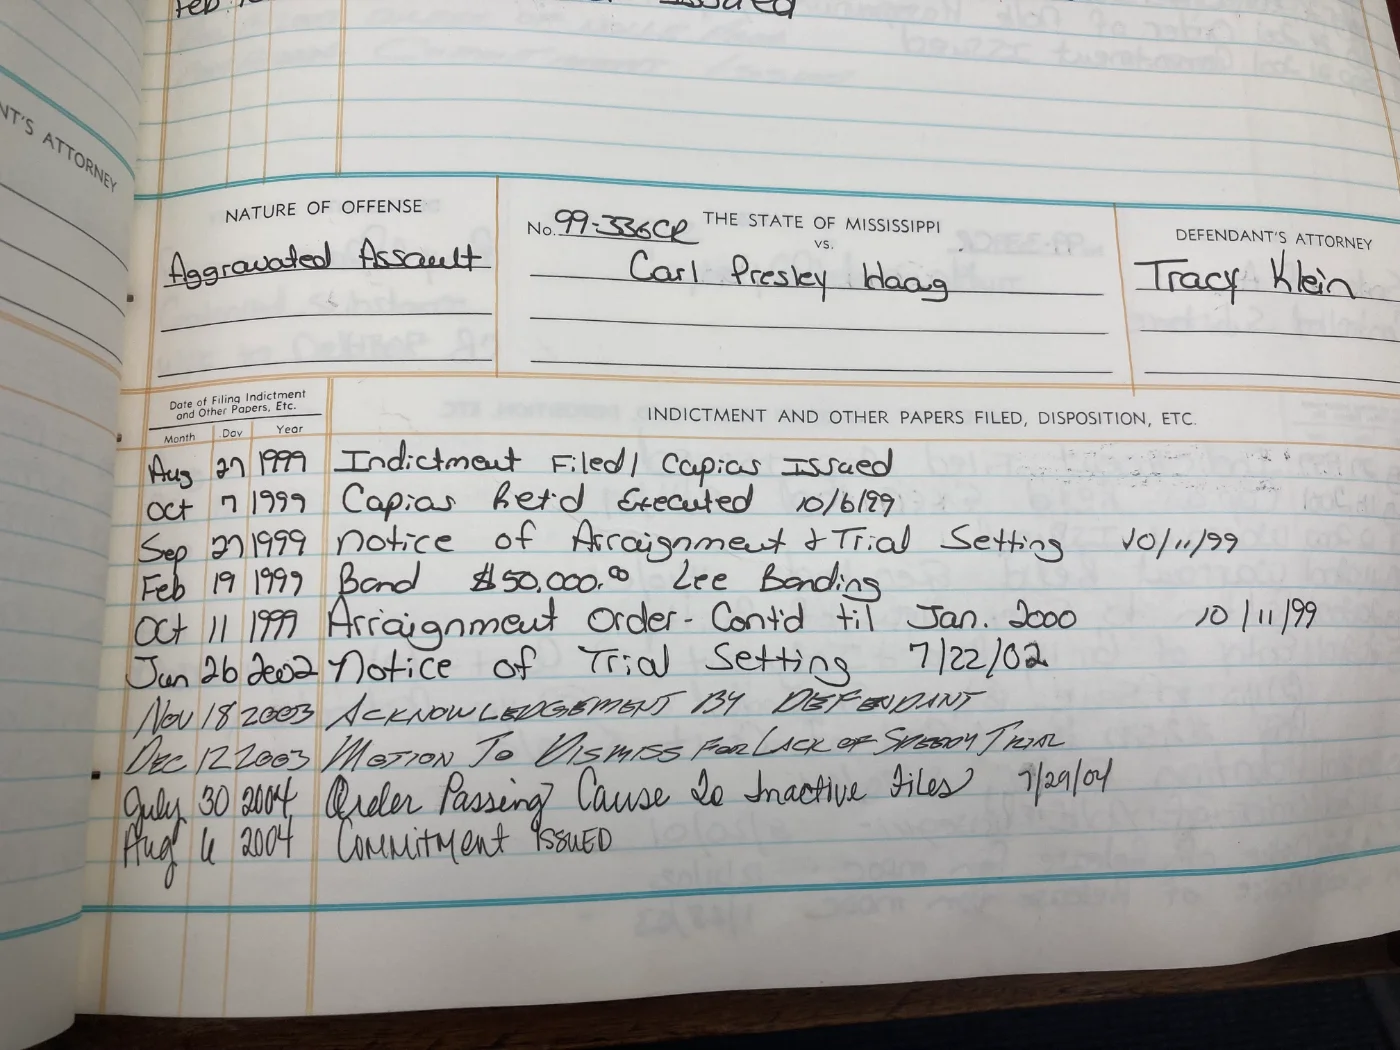 Issued
NT'S ATTORNEY
NATURE OF OFFENSE
Aggravated Assault
No. 99-336CR THE STATE OF MISSISSIPPI
vs.
Carl Presley Haag
DEFENDANT'S ATTORNEY
Tracy Klein
Date of Filing Indictment
and Other Papers, Etc.
Month Day Year
INDICTMENT AND OTHER PAPERS FILED, DISPOSITION, ETC.
Aug 27 1999 Indictment Filed/ Capias Issued
Oct 7 1999 Capias Ret'd Executed 10/6/99
Sep 27 1999 Notice of Arraignment & Trial Setting 10/11/99
Feb 19 1999 Bond $50,000.00 Lee Bonding
Oct 11 1999 Arraignment Order- Cont'd til Jan. 2000 10/11/99
Jun 26 2002 Notice of Trial Setting 7/22/02
Nov 18 2003 ACKNOWLEDGEMENT BY DEFENDANT
DEC 12 2003 MOTION TO DISMISS FOR LACK OF SPEEDY TRIAL
July 30 2004 Order Passing Cause To Inactive Files 7/29/04
Aug 6 2004 COMMITMENT ISSUED